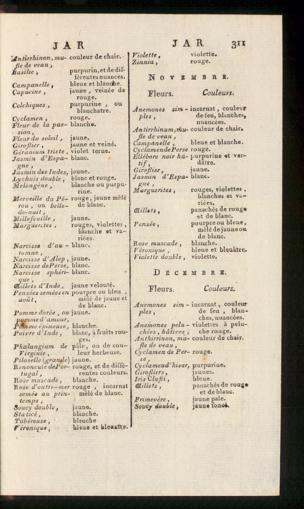 JAR
Antirrhinon, mu- couleur de chair.
fle de veau,
Basilic, purpurin, et de dif-
férentes nuances.
Campanelle, bleue et blanche.
Capucine, jaune, veinée de
rouge.
Colchiques, purpurine, ou
blanchatre.
Cyclamen, rouge.
Fleur de la pas- blanche.
sion,
Fleur du soleil, jaune.
Giroflier, jaune et veiné.
Géranium triste, violet terne.
Jasmin d'Espa- blanc.
gne,
Jasmin des Indes, jaune.
Lychnis double, blanc et rouge.
Melongène, blanche ou purpu-
rine.
Merveille du Pé- rouge, jaune mêlé
rou, ou belle- de blanc.
de-nuit,
Millefeuille, jaune.
Marguerites, rouges, violettes,
blanche et va-
riées.
Narcisse d'au- blanc.
tomne,
Narcisse d'Alep, jaune.
Narcisse de Perse, blanc.
Narcisse sphéri- blanc.
que,
Œillets d'Inde, jaune velouté.
Pensées semées en pourpre ou bleu,
août, mêlé de jaune et
de blanc.
Pomme dorée, ou jaune.
pomme d'amour,
Pomme épineuse, blanche.
Poivre d'Inde, blanc, à fruits rou-
ges.
Phalangium de pâle, ou de cou-
Virginie, leur herbeuse.
Piloselle (grande) jaune.
Renoncule de Por- rouge, et de diffé-
tugal, rentes couleurs.
Rose muscade, blanche.
Rose d'outre-mer rouge, incarnat
semée au prin- mêlé de blanc.
temps,
Soucy double, jaune.
Staticé, blanche.
Tubéreuse, blouche
Véronique, bleue et bleuâtre.
JAR 311
Violette, violette.
Zinnia, rouge.
NOVEMBRE.
Fleurs. Couleurs.
Anemones sim- incarnat, couleur
ples, de feu, blanches,
nuancées.
Antirrhinum, mu- couleur de chair.
fle de veau,
Campanelle, bleue et blanche.
Cyclamen de Perse rouge.
Ellébore noir hâ- purpurine et ver-
tif, dâtre.
Giroflier, jaune.
Jasmin d'Espa- blanc.
gne,
Marguerites, rouges, violettes,
blanches et va-
riées.
Œillets, panachés de rouge
et de blanc.
Pensée, pourpre ou bleue,
mêlé de jaune ou
de blanc.
Rose muscade, blanche.
Véronique, bleue et bleuâtre.
Violette double, violette.
DÉCEMBRE.
Fleurs. Couleurs.
Anemones sim- incarnat, couleur
ples, de feu, blan-
ches, nuancées.
Anemones pelu- violettes à pelu-
chées, hâtives, che rouge.
Anthirinon, mu- couleur de chair.
fle de veau,
Cyclamen de Per- rouge.
se,
Cyclamen d'hiver, purpurine.
Girofliers, jaunes.
Iris Clusii, bleue.
Œillets, panachés de rouge
et de blanc.
Primevère, jaune pale.
Soucy double, jaune foncé.